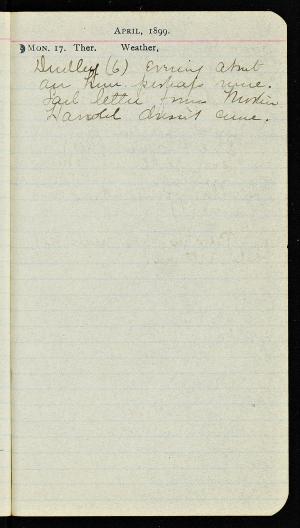 APRIL, 1899.
MON. 17. Ther. Weather,
Dudley (6) evening about
an hour perhaps more.
letter from Mother
Harold doesn't come.